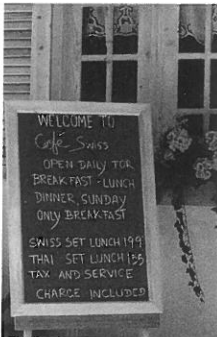 WELCOME TO
Café Swiss
OPEN DAILY FOR
BREAKFAST - LUNCH
DINNER, SUNDAY
ONLY BREAKFAST
SWISS SET LUNCH 199
THAI SET LUNCH 155
TAX AND SERVICE
CHARGE INCLUDED